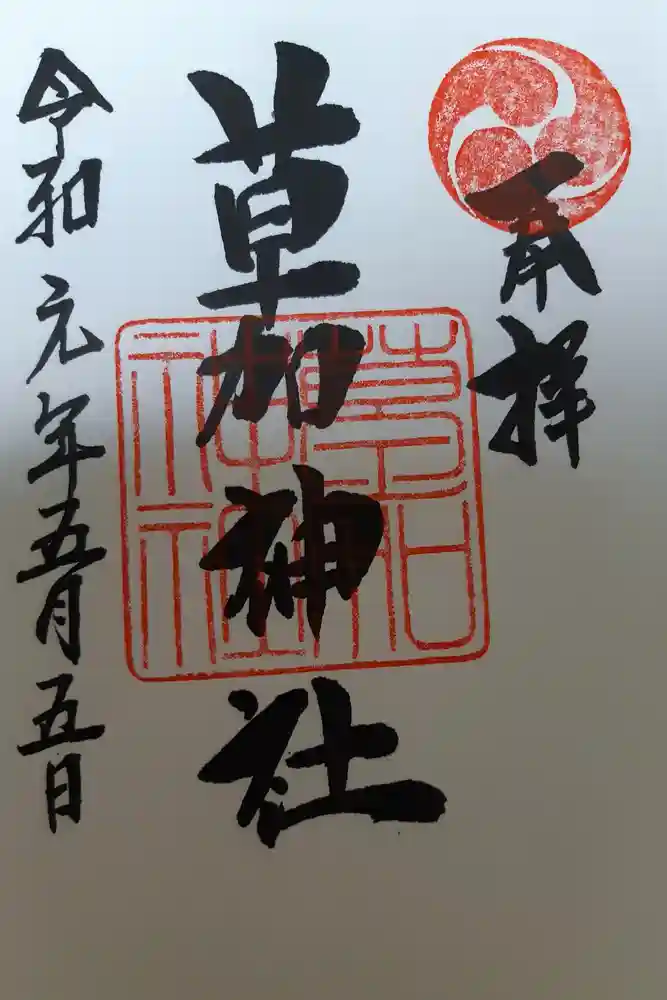 奉拝
草加神社
草加神社
令和元年五月五日